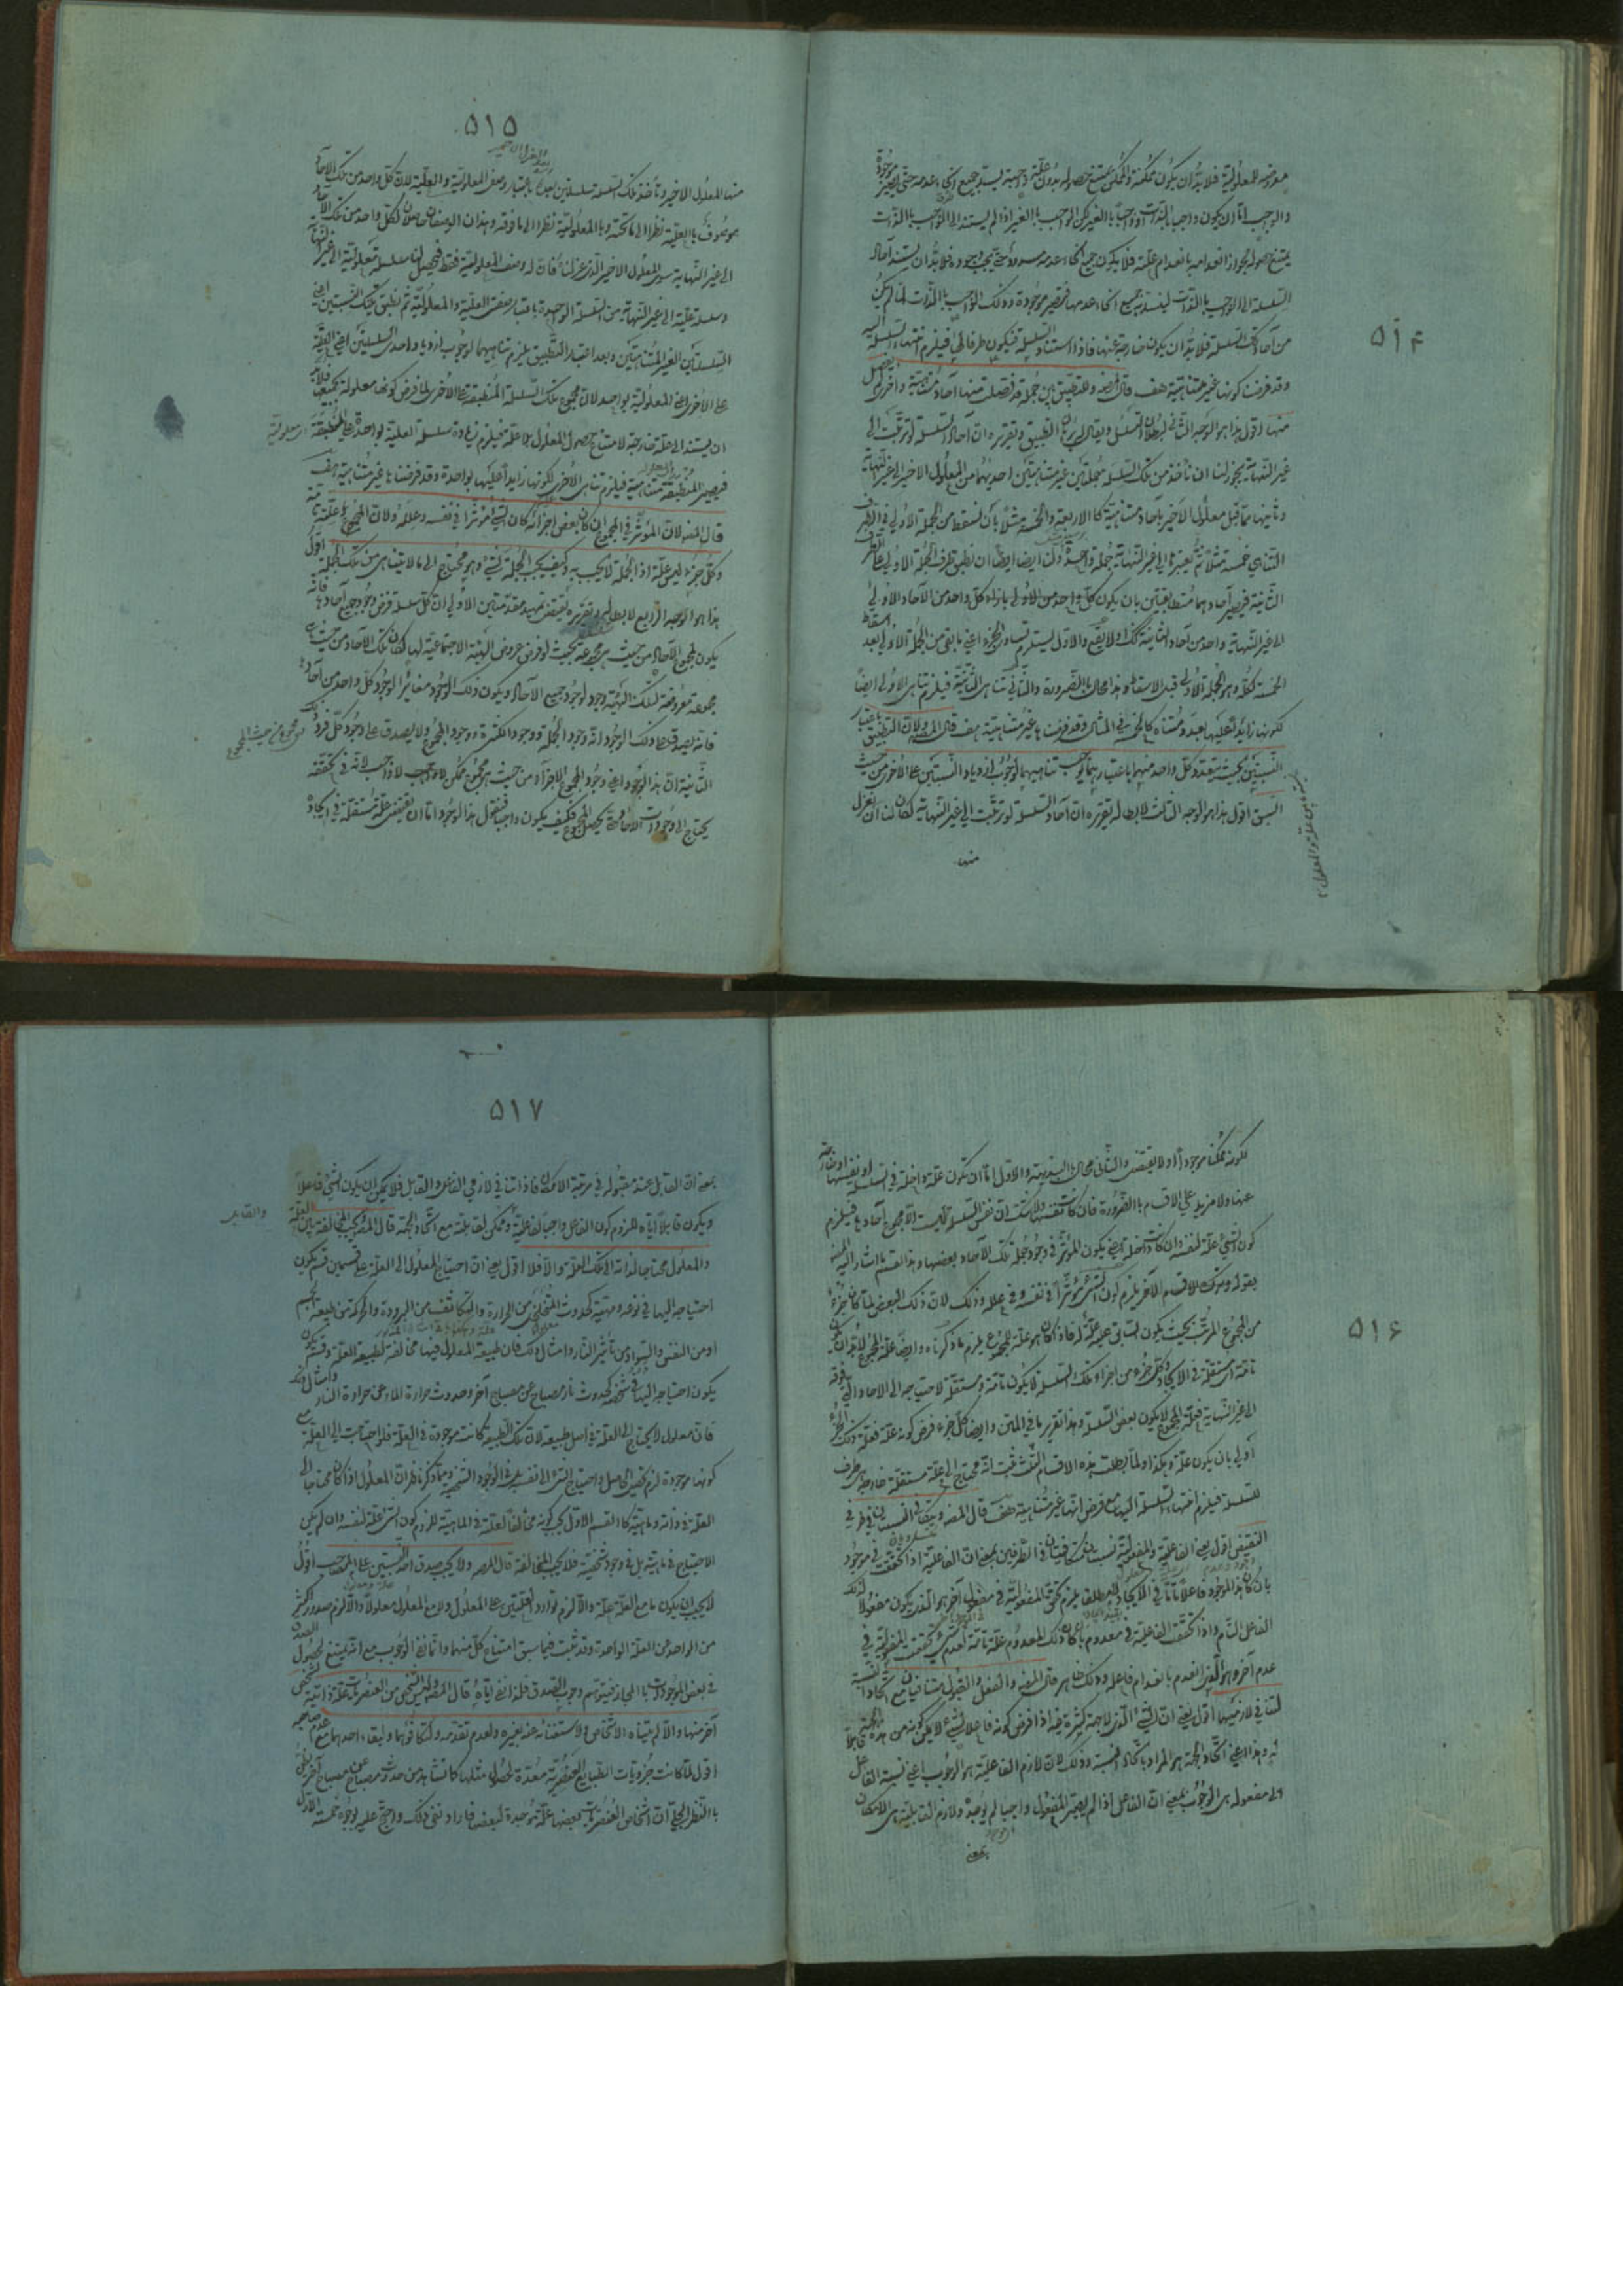 ۵۱۴
معروضة للمعلولية فلا بد ان يكون ممكنة والممكن يمتنع حصوله بدون علة واجبة يستند جميع انحاء عدمه حتى يصير موجودة
والواجب اما ان يكون واجبا بالذات او واجبا بالغير لكن الواجب بالغير اذا لم يستند الى الواجب بالذات
يمتنع حصوله لجواز انعدامه بانعدام علته فلا يكون جميع انحاء عدمه مسدودة حتى يجب وجوده فلا بد ان يستند آحاد
السلسلة الى الواجب بالذات ليسند به جميع انحاء عدمها فتصير موجودة وذلك الواجب بالذات لما لم يكن
من آحاد تلك السلسلة فلا بد ان يكون خارجة عنها فاذا استناد السلسلة فيكون طرفا لها فيلزم انتهاء السلسلة اليه
وقد فرضت كونها غير متناهية هف قال المصنف وللتطبيق بين جملة قد فصلت منها آحاد متناهية واخرى لم يفصل
منها اقول هذا هو الوجه الثاني لبطلان التسلسل ويقال له برهان التطبيق وتقريره ان آحاد السلسلة لو ترتبت الى
غير النهاية يجوز لنا ان نأخذ من تلك السلسلة جملتين غير متناهيتين احديهما من المعلول الاخير الى غير النهاية
وثانيها مما قبل معلول الاخير بآحاد متناهية كالاربعة والخمسة مثلا بان نسقط من الجملة الاولى في الطرف
المتناهي خمسة مثلا ثم نعتبرها الى غير النهاية جملة واحدة ولنا ايضا ان نطبق طرف الجملة الاولى على الطرف
الثانية فيصير آحادهما متطابقتين بان يكون كل واحد من الاولى بازاء كل واحد من الآحاد الاولى
الى غير النهاية واحد من آحاد الثانية كذا ولا يقع والاول يستلزم تساوى الجزء اعنى ما بقى من الجملة الاولى بعد اسقاط
الخمسة لكله وهو الجملة الاولى قبل الاسقاط وهذا محال بالضرورة والثاني تناهى الثانية فيلزم تناهى الاولى ايضا
لكونها زائدة عليها بعدد متناه كالخمسة في المثال وقد فرضناها غير متناهية هف قال المصنف ولان التطبيق باعتبار
النسبتين بحيث يتعدد كل واحد منهما باعتبارهما يوجب تناهيهما لوجوب ازدياد النسبتين على الاخرى من حيث
السبق اقول هذا هو الوجه الثالث لابطاله تقريره ان آحاد السلسلة لو ترتبت الى غير النهاية لكان لنا ان نعزل
منها
۵۱۵
منها المعلول الاخير ونأخذ تلك السلسلة سلسلتين باعتبار وصفى المعلولية والعلية لان كل واحد من تلك الآحاد
موصوف بالعلية نظرا الى ما تحته وبالمعلولية نظرا الى ما فوقه وهذان الوصفان حاصلان لكل واحد من تلك الآحاد
الى غير النهاية سوى المعلول الاخير الذى عزلناه فان له وصف المعلولية فقط فيحصل لنا سلسلة معلولية الى غير النهاية
وسلسلة علية الى غير النهاية من السلسلة الواحدة باعتبار صفتى العلية والمعلولية ثم نطبق بتلك النسبتين اعنى
السلسلتين الغير المتناهيتين وبعد اعتبار التطبيق يلزم تناهيهما لوجوب ازدياد احدى السلسلتين اعنى العلية
على الاخرى اعنى المعلولية بواحد لان مجموع تلك السلسلة المنطبقة على الاخرى لما فرض كونها معلولة بجميعها فلا بد
ان يستند الى علة خارجة لامتناع حصول المعلول بلا علة فيلزم زيادة سلسلة العلية بواحدة على المنطبقة
فيصير المنطبقة متناهية فيلزم تناهى الاخرى لكونها زايدا عليها بواحدة وقد فرضناها غير متناهية هف
قال المصنف ولان المؤثر في المجموع ان كان بعض اجزائه كان الشئ مؤثرا في نفسه وعلله ولان المجموع له علة تامة
وكل جزء ليس علة اذ الجملة لا يجب به وكيف يجب الجملة بشئ وهو محتاج الى ما لا يتناهى من تلك الجملة اقول
هذا هو الوجه الرابع لابطاله وتقريره يقتضى تمهيد مقدمتين الاولى ان كل سلسلة فرض وجود جميع آحادها فانه
يكون لمجموع الآحاد من حيث هى مجموعة بحيث لو فرض عروض الهيئة الاجتماعية لها لكان تلك الآحاد من حيث هى
مجموعة معروضة لتلك الهيئة وجود لوجود جميع الآحاد ويكون ذلك الوجود مغايرا لوجود كل واحد من آحادها
فانه يصدق على ذلك الوجود انه وجود الجملة ووجود الكثرة ووجود المجموع ولا يصدق على وجود كل فرد
الثانية ان هذا الوجود اعنى وجود المجموع الاجزاء من حيث هو مجموع ممكن لا واجب لانه في تحققه
يحتاج الى وجودات الآحاد حتى يحصل المجموع فكيف يكون واجبا فنقول هذا الوجود اما ان يقتضى علة مستقلة في ايجاده
۵۱۶
لكونه ممكنا موجودا او لا يقتضى والثاني محال بالبديهة والاول اما ان تكون علة داخلة في السلسلة او نفسها او خارجة
عنها ولا مزيد على الاقسام بالضرورة فان كانت نفسها ولا شك ان نفس السلسلة ليست الا مجموع آحادها فيلزم
كون الشئ علة لنفسه وان كانت داخلة اعنى يكون المؤثر في وجود جملة تلك الآحاد بعضها وهذا القسم ما اشار اليه المصنف
بقوله وترك الاقسام الآخر يلزم كون الشئ مؤثرا في نفسه وفي علله وذلك لان ذلك البعض لما كان جزء
من المجموع المرتب بحيث يكون كل سابق علية علة له فاذا كان هو علة للمجموع يلزم ما ذكرناه وايضا علة المجموع لا بد ان تكون
تامة اى مستقلة في الايجاد وكل جزء من اجزاء تلك السلسلة لا يكون تامة ومستقلة لاحتياجه الى الآحاد التى فوقه
الى غير النهاية فعلة المجموع لا يكون بعض السلسلة وهذا تقرير ما في المتن وايضا كل جزء فرض كونه علة فعلة ذلك الجزء
اولى بان يكون علة وهكذا ولما بطلت هذه الاقسام الثلث ثبت انه يحتاج الى علة مستقلة خارجة هى طرف
للسلسلة فيلزم انتهاء السلسلة اليها مع فرض انها غير متناهية هف قال المصنف ويتكافى النسبتان في طرفى
النقيض اقول يعنى الفاعلية والمفعولية نسبتان متكافيتان في الطرفين بمعنى ان الفاعلية اذا تحققت في موجود
بان كان هذا الموجود فاعلا تاما في الايجاد المطلقا يلزم تحقق المفعولية في مفعول آخر هو الذى يكون مفعولا لذلك
الفاعل التام واذا تحقق الفاعلية في معدوم بان كان ذلك المعدوم علة تامة لعدم شئ تحققت المفعولية في
عدم آخر وهو الذى انعدم بانعدام فاعله وذلك ظاهر قال المصنف والفعل والقبول متنافيان مع اتحاد النسبة
لتنافى لازميهما اقول يعنى ان الشئ الذى لا جهة كثرة فيه اذا فرض كونه فاعلا لشئ لا يمكن كونه من هذه الجهة قابلا
له وهذا اعنى اتحاد الجهة هو المراد باتحاد النسبة وذلك لان لازم الفاعلية هو الوجوب اعنى نسبة الفاعل
الى مفعوله هى الوجوب بمعنى ان الفاعل اذا لم يصير المفعول واجبا لم يوجد ولازم القابلية هى الامكان
بمعنى
۵۱۷
بمعنى ان القابل عند مقبوله في مرتبة الامكان فاذا تنافى لازمى الفاعل والقابل فلا يمكن ان يكون الشئ فاعلا
ويكون قابلا اياه للزوم كون الفاعل واجبا لفاعلية وممكن لقابلية مع اتحاد الجهة قال المصنف ويجب المخالفة بين العلة
والمعلول محتاجا لذاته الى تلك العلة والا فلا اقول يعنى ان احتياج المعلول الى العلة على قسمين قسم يكون
احتياجه اليها في نوعه ومهيته كحدوث التخلخل من الحرارة والتكاثف من البرودة والحركة من طبيعة الجسم
او من النفس والسواد من تأثير النار وامثال ذلك فان طبيعة المعلول فيها مخالفة لطبيعة العلة وقسم يكون
يكون احتياجه اليها في شخصه كحدوث نار مصباح عن مصباح آخر وحدوث حرارة الماء عن حرارة النار وامثال ذلك
فان معلول لا يحتاج الى العلة في اصل طبيعة لان تلك الطبيعة كانت موجودة في العلة فلو احتاجت الى العلة مع
كونها موجودة لزم تحصيل الحاصل واحتياج الشئ الى نفسه بل في الوجود الشخصى ومما ذكر ظهر ان المعلول اذا كان محتاجا الى
العلة في ذاته وماهيته كما القسم الاول يجب كونه مخالفا للعلة في الماهية للزوم كون الشئ علة لنفسه وان لم يكن
الاحتياج في ماهيته بل في وجود شخصيته فلا يجب المخالفة قال المصنف ولا يجب صدق احدى النسبتين على المصاحب اقول
لا يجب ان يكون مامع العلة علة والا لزم توارد العلتين على المعلول ولا مع المعلول معلولا والا لزم صدور الكثير
من الواحد عن العلة الواحدة وقد ثبت فيما سبق امتناع كل منهما واما نفى الوجوب مع انه يمتنع لحصول الصدق
في بعض الموجودات بالمجاز فيتوهم وجوب الصدق فلذا نفى اياه قال المصنف وليس الشخص من العنصريات علة ذاتية لشخص
آخر منها والا لم يتناه الاشخاص ولاستغنائه عنه بغيره ولعدم تقدمه ولتكافؤهما ولبقاء احدهما مع عدم صاحبه
اقول لما كانت جزويات الطبايع العنصرية معدة لحصول مثلها كما نشاهد من حدوث مصباح عن مصباح آخر يظن
بالنظر الجلى ان اشخاص العنصريات بعضها علة موجدة لبعض فاراد نفى ذلك واحتج عليه بوجوه خمسة الاول